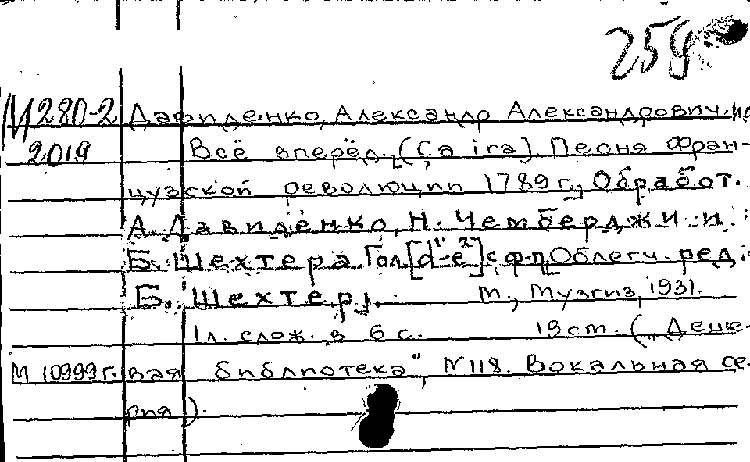 259
М 280-2 Давиденко, Александр Александрович. и др
2019 Всё вперёд. (Ça ira). Песня Фран-
цузской революции 1789 г., Обработ.
А. Давиденко, Н. Чемберджи и
Б. Шехтера. Гол [d'-e²] с ф-п. Облегч. ред.:
Б. Шехтер).
М., Музгиз, 1931.
1 л. слож. в 6 с. 19 cm. („Деше-
М 10999 г. вая библиотека", N 118. Вокальная се-
рия).